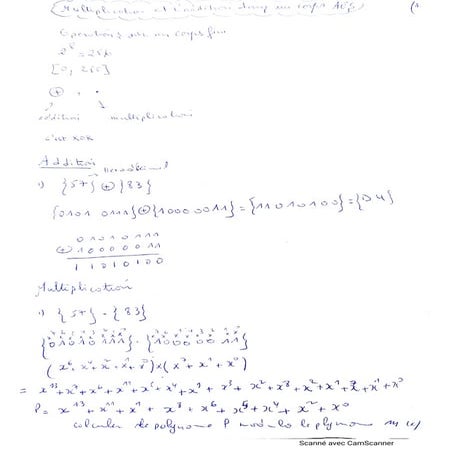 Multiplication et l'addition dans un corps AES
Operations sur un corps fini
2^8 = 256
[0, 255]
⊕ , •
addition multiplication
c'est XOR
Addition hexadécimal
1) {57} ⊕ {83}
{0101 0111} ⊕ {1000 0011} = {11010100} = {D4}
01010111
⊕ 10000011
11010100
Multiplication
1) {57} • {83}
{01010111} • {10000011}
(x^6 + x^4 + x^2 + x^1 + x^0) x (x^7 + x^1 + x^0)
= x^13 + x^7 + x^6 + x^11 + x^5 + x^4 + x^9 + x^3 + x^2 + x^8 + x^2 + x^1 + x^7 + x^1 + x^0
P = x^13 + x^11 + x^9 + x^8 + x^6 + x^5 + x^4 + x^3 + x^0
calculer de polynome P modulo le polynome m(x)
Scanné avec CamScanner